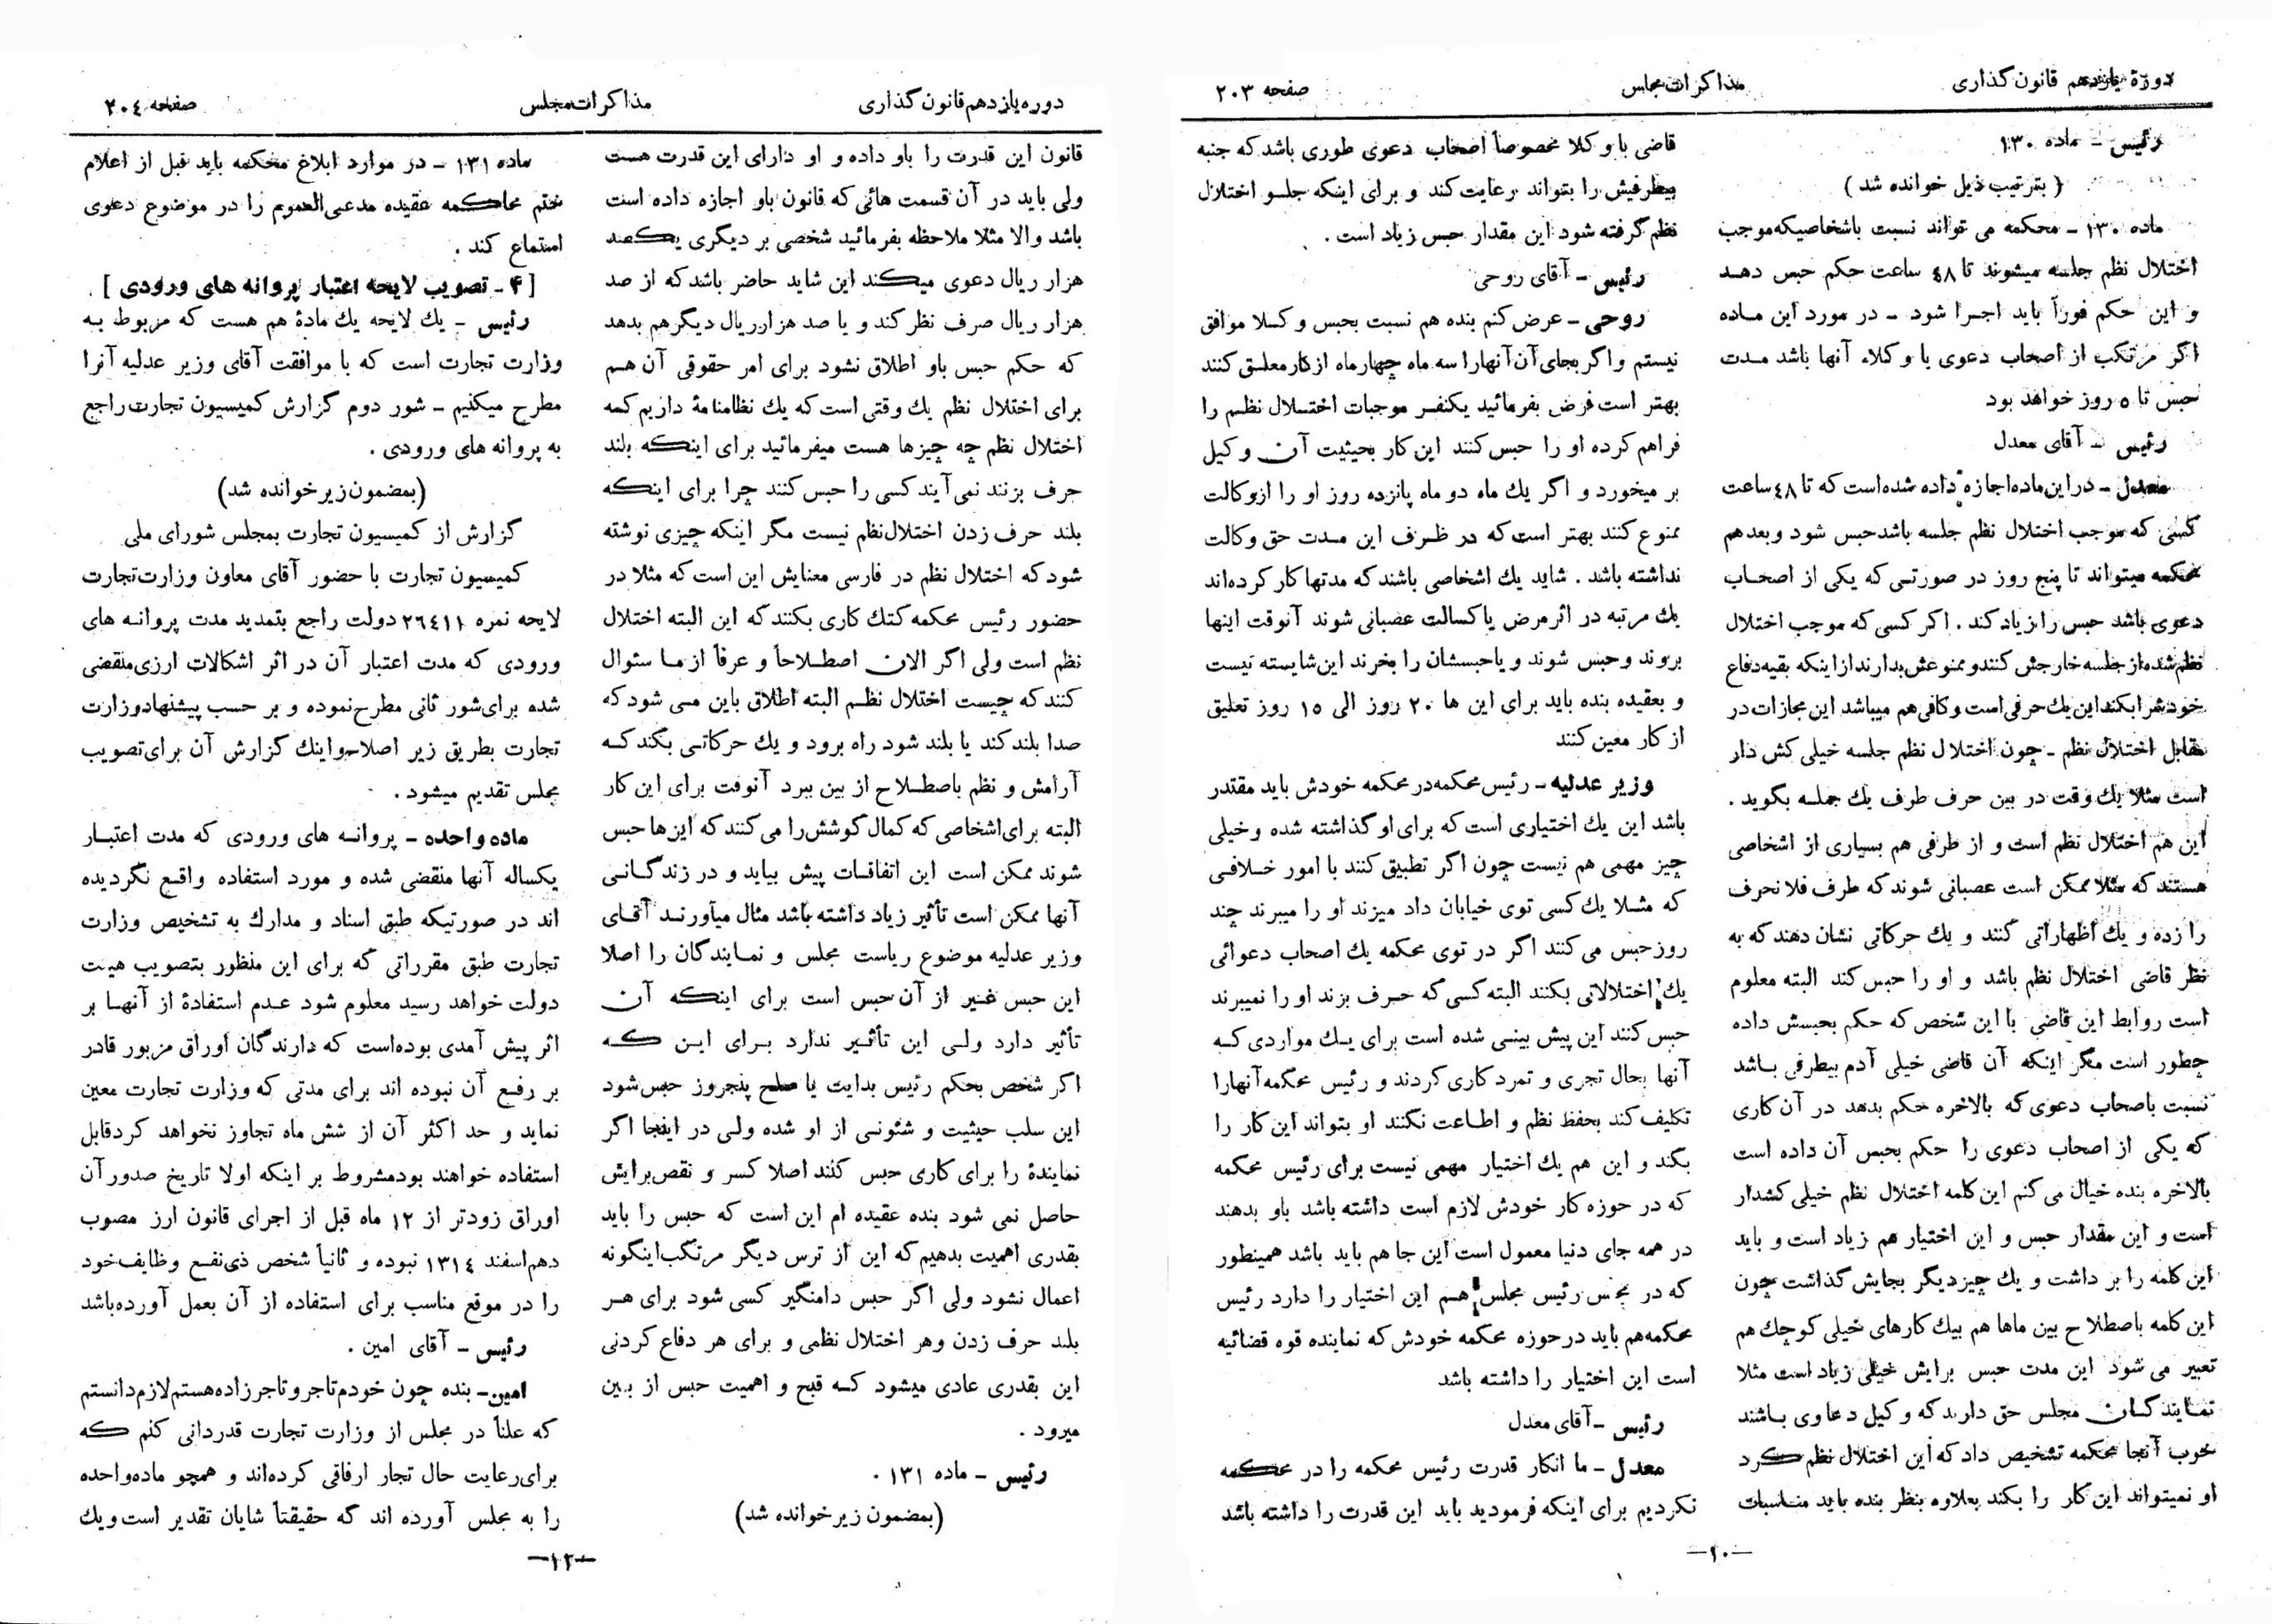 دورهٔ یازدهم قانون گذاری
مذاکرات مجلس
صفحه ۲۰۳
رئیس – ماده ۱۳۰
( بترتیب ذیل خوانده شد )
ماده ۱۳۰ – محکمه می تواند نسبت باشخاصیکه موجب
اختلال نظم جلسه میشوند تا ٤۸ ساعت حکم حبس دهد
و این حکم فوراً باید اجرا شود – در مورد این ماده
اگر مرتکب از اصحاب دعوی یا وکلاء آنها باشد مدت
حبس تا ٥ روز خواهد بود
رئیس – آقای معدل
معدل – در این ماده اجازه داده شده است که تا ٤۸ ساعت
کسی که موجب اختلال نظم جلسه باشد حبس شود و بعد هم
محکمه میتواند تا پنج روز در صورتی که یکی از اصحاب
دعوی باشد حبس را زیاد کند . اگر کسی که موجب اختلال
نظم شده از جلسه خارجش کنند و ممنوعش بدارند از اینکه بقیه دفاع
خودش را بکند این یك حرفی است و کافی هم میباشد این مجازات در
مقابل اختلال نظم – چون اختلال نظم جلسه خیلی کش دار
است مثلا یك وقت در بین حرف طرف یك جمله بگوید .
این هم اختلال نظم است و از طرفی هم بسیاری از اشخاصی
هستند که مثلا ممکن است عصبانی شوند که طرف فلان حرف
را زده و یك اظهاراتی کنند و یك حرکاتی نشان دهند که به
نظر قاضی اختلال نظم باشد و او را حبس کند البته معلوم
است روابط این قاضی با این شخص که حکم بحبسش داده
چطور است مگر اینکه آن قاضی خیلی آدم بیطرفی باشد
نسبت باصحاب دعوی که بالاخره حکم بدهد در آن کاری
که یکی از اصحاب دعوی را حکم بحبس آن داده است
بالاخره بنده خیال می کنم این کلمه اختلال نظم خیلی کشدار
است و این مقدار حبس و این اختیار هم زیاد است و باید
این کلمه را بر داشت و یك چیز دیگر بجایش گذاشت چون
این کلمه باصطلاح بین ماها هم بیك کارهای خیلی کوچك هم
تعبیر می شود این مدت حبس برایش خیلی زیاد است مثلا
نمایندگان مجلس حق دارند که وکیل دعاوی باشند
خوب آنجا محکمه تشخیص داد که این اختلال نظم کرد
او نمیتواند این کار را بکند بعلاوه بنظر بنده باید مناسبات
قاضی با وکلا مخصوصاً اصحاب دعوی طوری باشد که جنبه
بیطرفیش را بتواند رعایت کند و برای اینکه جلو اختلال
نظم گرفته شود این مقدار حبس زیاد است .
رئیس – آقای روحی
روحی – عرض کنم بنده هم نسبت بحبس وکلا موافق
نیستم و اگر بجای آن آنها را سه ماه چهار ماه از کار معلق کنند
بهتر است فرض بفرمائید یکنفر موجبات اختلال نظم را
فراهم کرده او را حبس کنند این کار بحیثیت آن وکیل
بر میخورد و اگر یك ماه دو ماه پانزده روز او را از وکالت
ممنوع کنند بهتر است که در ظرف این مدت حق وکالت
نداشته باشد . شاید یك اشخاصی باشند که مدتها کار کرده اند
یك مرتبه در اثر مرض یا کسالت عصبانی شوند آنوقت اینها
بروند و حبس شوند و یا حبسشان را بخرند این شایسته نیست
و بعقیده بنده باید برای این ها ۲۰ روز الی ۱٥ روز تعلیق
از کار معین کنند
وزیر عدلیه – رئیس محکمه در محکمه خودش باید مقتدر
باشد این یك اختیاری است که برای او گذاشته شده و خیلی
چیز مهمی هم نیست چون اگر تطبیق کنند با امور خلافی
که مثلا یك کسی توی خیابان داد میزند او را میبرند چند
روز حبس می کنند اگر در توی محکمه یك اصحاب دعوائی
یك اختلالاتی بکنند البته کسی که حرف بزند او را نمیبرند
حبس کنند این پیش بینی شده است برای یك مواردی که
آنها بحال تجری و تمرد کاری کردند و رئیس محکمه آنها را
تکلیف کند بحفظ نظم و اطاعت نکنند او بتواند این کار را
بکند و این هم یك اختیار مهمی نیست برای رئیس محکمه
که در حوزه کار خودش لازم است داشته باشد باو بدهند
در همه جای دنیا معمول است این جا هم باید باشد همینطور
که در مجلس رئیس مجلس هم این اختیار را دارد رئیس
محکمه هم باید در حوزه محکمه خودش که نماینده قوه قضائیه
است این اختیار را داشته باشد
رئیس – آقای معدل
معدل – ما انکار قدرت رئیس محکمه را در محکمه
نکردیم برای اینکه فرمودید باید این قدرت را داشته باشد
–۱۰–
دوره یازدهم قانون گذاری
مذاکرات مجلس
صفحه ۲۰٤
قانون این قدرت را باو داده و او دارای این قدرت هست
ولی باید در آن قسمت هائی که قانون باو اجازه داده است
باشد والا مثلا ملاحظه بفرمائید شخصی بر دیگری یکصد
هزار ریال دعوی میکند این شاید حاضر باشد که از صد
هزار ریال صرف نظر کند و یا صد هزار ریال دیگر هم بدهد
که حکم حبس باو اطلاق نشود برای امر حقوقی آن هم
برای اختلال نظم یك وقتی است که یك نظامنامهٔ داریم که
اختلال نظم چه چیزها هست میفرمائید برای اینکه بلند
حرف بزند نمی آیند کسی را حبس کنند چرا برای اینکه
بلند حرف زدن اختلال نظم نیست مگر اینکه چیزی نوشته
شود که اختلال نظم در فارسی معنایش این است که مثلا در
حضور رئیس محکمه کتك کاری بکنند که این البته اختلال
نظم است ولی اگر الان اصطلاحاً و عرفاً از ما سئوال
کنند که چیست اختلال نظم البته اطلاق باین می شود که
صدا بلند کند یا بلند شود راه برود و یك حرکاتی بکند که
آرامش و نظم باصطلاح از بین ببرد آنوقت برای این کار
البته برای اشخاصی که کمال کوشش را می کنند که این ها حبس
شوند ممکن است این اتفاقات پیش بیاید و در زندگانی
آنها ممکن است تأثیر زیاد داشته باشد مثال میآورند آقای
وزیر عدلیه موضوع ریاست مجلس و نمایندگان را اصلا
این حبس غیر از آن حبس است برای اینکه آن
تأثیر دارد ولی این تأثیر ندارد برای این که
اگر شخص بحکم رئیس بدایت یا صلح پنجروز حبس شود
این سلب حیثیت و شئونی از او شده ولی در اینجا اگر
نمایندهٔ را برای کاری حبس کنند اصلا کسر و نقص برایش
حاصل نمی شود بنده عقیده ام این است که حبس را باید
بقدری اهمیت بدهیم که این از ترس دیگر مرتکب اینگونه
اعمال نشود ولی اگر حبس دامنگیر کسی شود برای هر
بلند حرف زدن وهر اختلال نظمی و برای هر دفاع کردنی
این بقدری عادی میشود که قبح و اهمیت حبس از بین
میرود .
رئیس – ماده ۱۳۱ .
(بمضمون زیر خوانده شد)
ماده ۱۳۱ – در موارد ابلاغ محکمه باید قبل از اعلام
ختم محاکمه عقیده مدعی العموم را در موضوع دعوی
استماع کند .
[ ۴ – تصویب لایحه اعتبار پروانه های ورودی ]
رئیس – یك لایحه یك مادهٔ هم هست که مربوط به
وزارت تجارت است که با موافقت آقای وزیر عدلیه آنرا
مطرح میکنیم – شور دوم گزارش کمیسیون تجارت راجع
به پروانه های ورودی .
(بمضمون زیر خوانده شد)
گزارش از کمیسیون تجارت بمجلس شورای ملی
کمیسیون تجارت با حضور آقای معاون وزارت تجارت
لایحه نمره ۲٦٤۱۱ دولت راجع بتمدید مدت پروانه های
ورودی که مدت اعتبار آن در اثر اشکالات ارزی منقضی
شده برای شور ثانی مطرح نموده و بر حسب پیشنهاد وزارت
تجارت بطریق زیر اصلاح و اینك گزارش آن برای تصویب
مجلس تقدیم میشود .
ماده واحده – پروانه های ورودی که مدت اعتبار
یکساله آنها منقضی شده و مورد استفاده واقع نگردیده
اند در صورتیکه طبق اسناد و مدارك به تشخیص وزارت
تجارت طبق مقرراتی که برای این منظور بتصویب هیئت
دولت خواهد رسید معلوم شود عدم استفادهٔ از آنها بر
اثر پیش آمدی بوده است که دارندگان اوراق مزبور قادر
بر رفع آن نبوده اند برای مدتی که وزارت تجارت معین
نماید و حد اکثر آن از شش ماه تجاوز نخواهد کرد قابل
استفاده خواهند بود مشروط بر اینکه اولا تاریخ صدور آن
اوراق زودتر از ۱۲ ماه قبل از اجرای قانون ارز مصوب
دهم اسفند ۱۳۱٤ نبوده و ثانیاً شخص ذی نفع وظایف خود
را در موقع مناسب برای استفاده از آن بعمل آورده باشد
رئیس – آقای امین .
امین – بنده چون خودم تاجر و تاجر زاده هستم لازم دانستم
که علناً در مجلس از وزارت تجارت قدردانی کنم که
برای رعایت حال تجار ارفاقی کرده اند و همچو ماده واحده
را به مجلس آورده اند که حقیقتاً شایان تقدیر است و یك